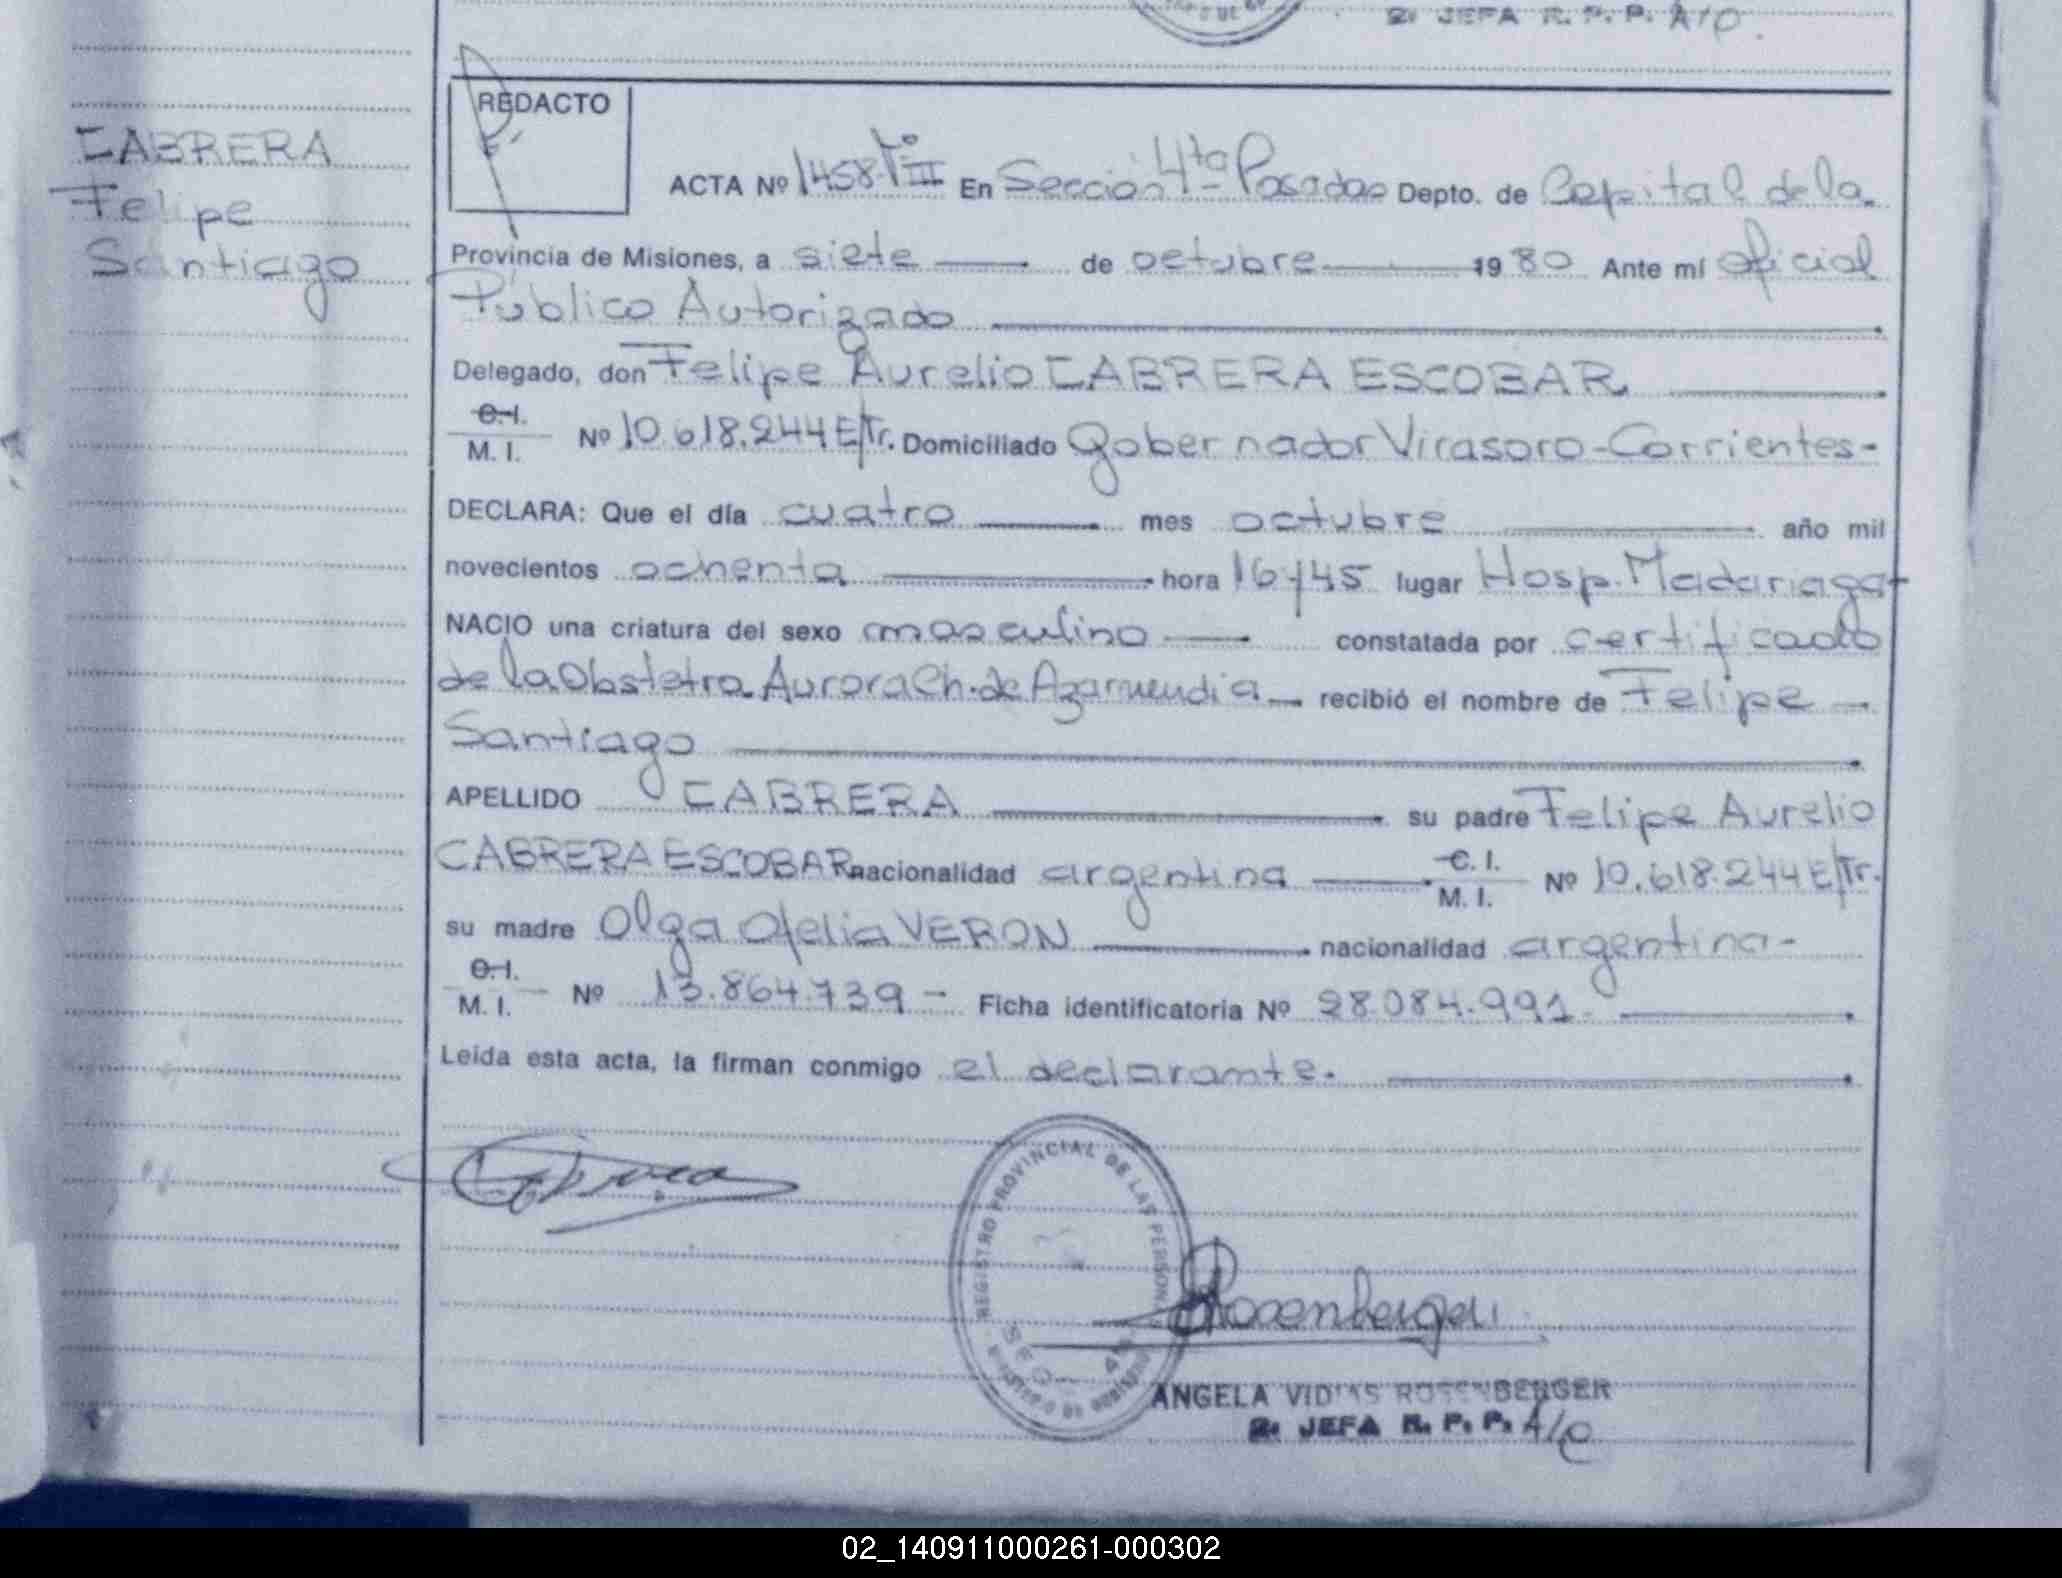 2. JEFA R. P. P. A/C.
REDACTO
CABRERA
Felipe
Santiago
ACTA Nº 1458-Tº III En Sección 4ta- Posadas Depto. de Capital de la
Provincia de Misiones, a siete de octubre 1980 Ante mí Oficial
Público Autorizado
Delegado, don Felipe Aurelio CABRERA ESCOBAR
C.I. / M. I. Nº 10.618.244 E/Tr. Domiciliado Gobernador Virasoro-Corrientes-
DECLARA: Que el día cuatro mes octubre año mil
novecientos ochenta hora 16y45 lugar Hosp. Madariaga-
NACIO una criatura del sexo masculino constatada por certificado
de la Obstetra Aurora Ch. de Azarmendia recibió el nombre de Felipe
Santiago
APELLIDO CABRERA su padre Felipe Aurelio
CABRERA ESCOBAR nacionalidad argentina C. I. / M. I. Nº 10.618.244 E/Tr.
su madre Olga Ofelia VERON nacionalidad argentina-
C.I. / M. I. Nº 13.864.739 - Ficha identificatoria Nº 28.084.991
Leída esta acta, la firman conmigo el declarante.
REGISTRO PROVINCIAL DE LAS PERSONAS
Rosenberger
ANGELA VIDAS ROSENBERGER
2. JEFA R. P. P. A/C
02_140911000261-000302